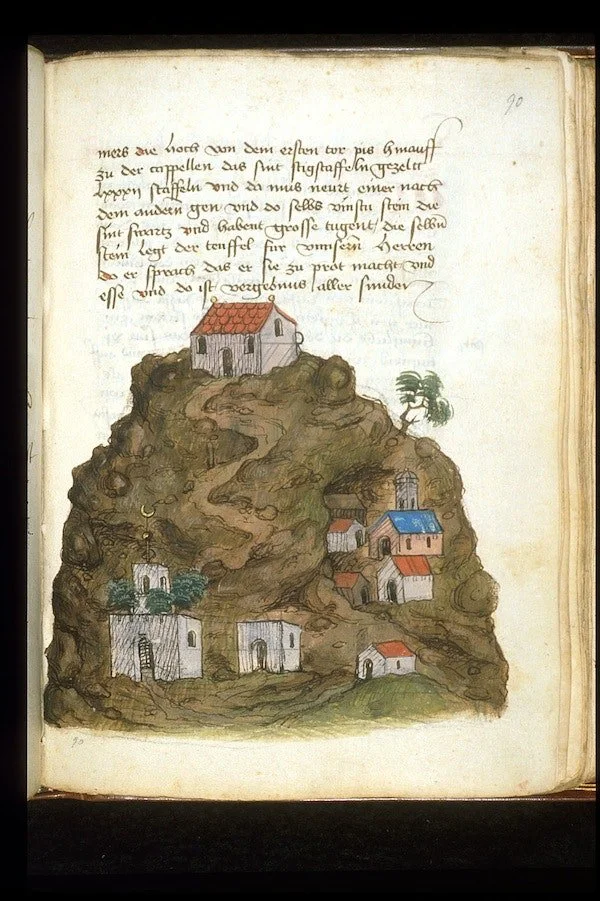 90
mers die hoch von dem ersten tor pis hinauff
zu der cappellen das sint stigstaffeln gezelt
lxxxii staffeln und da mus neurt einer nach
dem andern gen und do selbs vinstu stein die
sint swartz und habent grosse tugent die selbn
stein legt der teuffel für unnsern herren
do er sprach das er sie zu prot macht und
esse und do ist vergebnus aller sunden
90